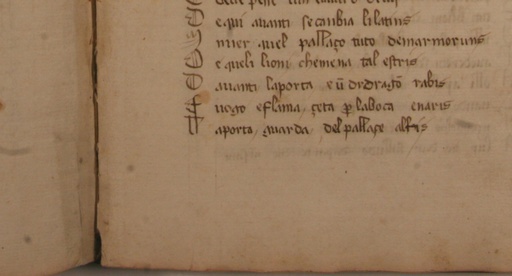 e qui auanti se canbia li latins
mer quel pallaço tuto de marmoruns
e queli lioni che mena tal estris
auanti la porta e ũ dr dragõ rabis
uogo e flama çeta ꝑ la boca e naris
a porta guarda del pallaçe alfris